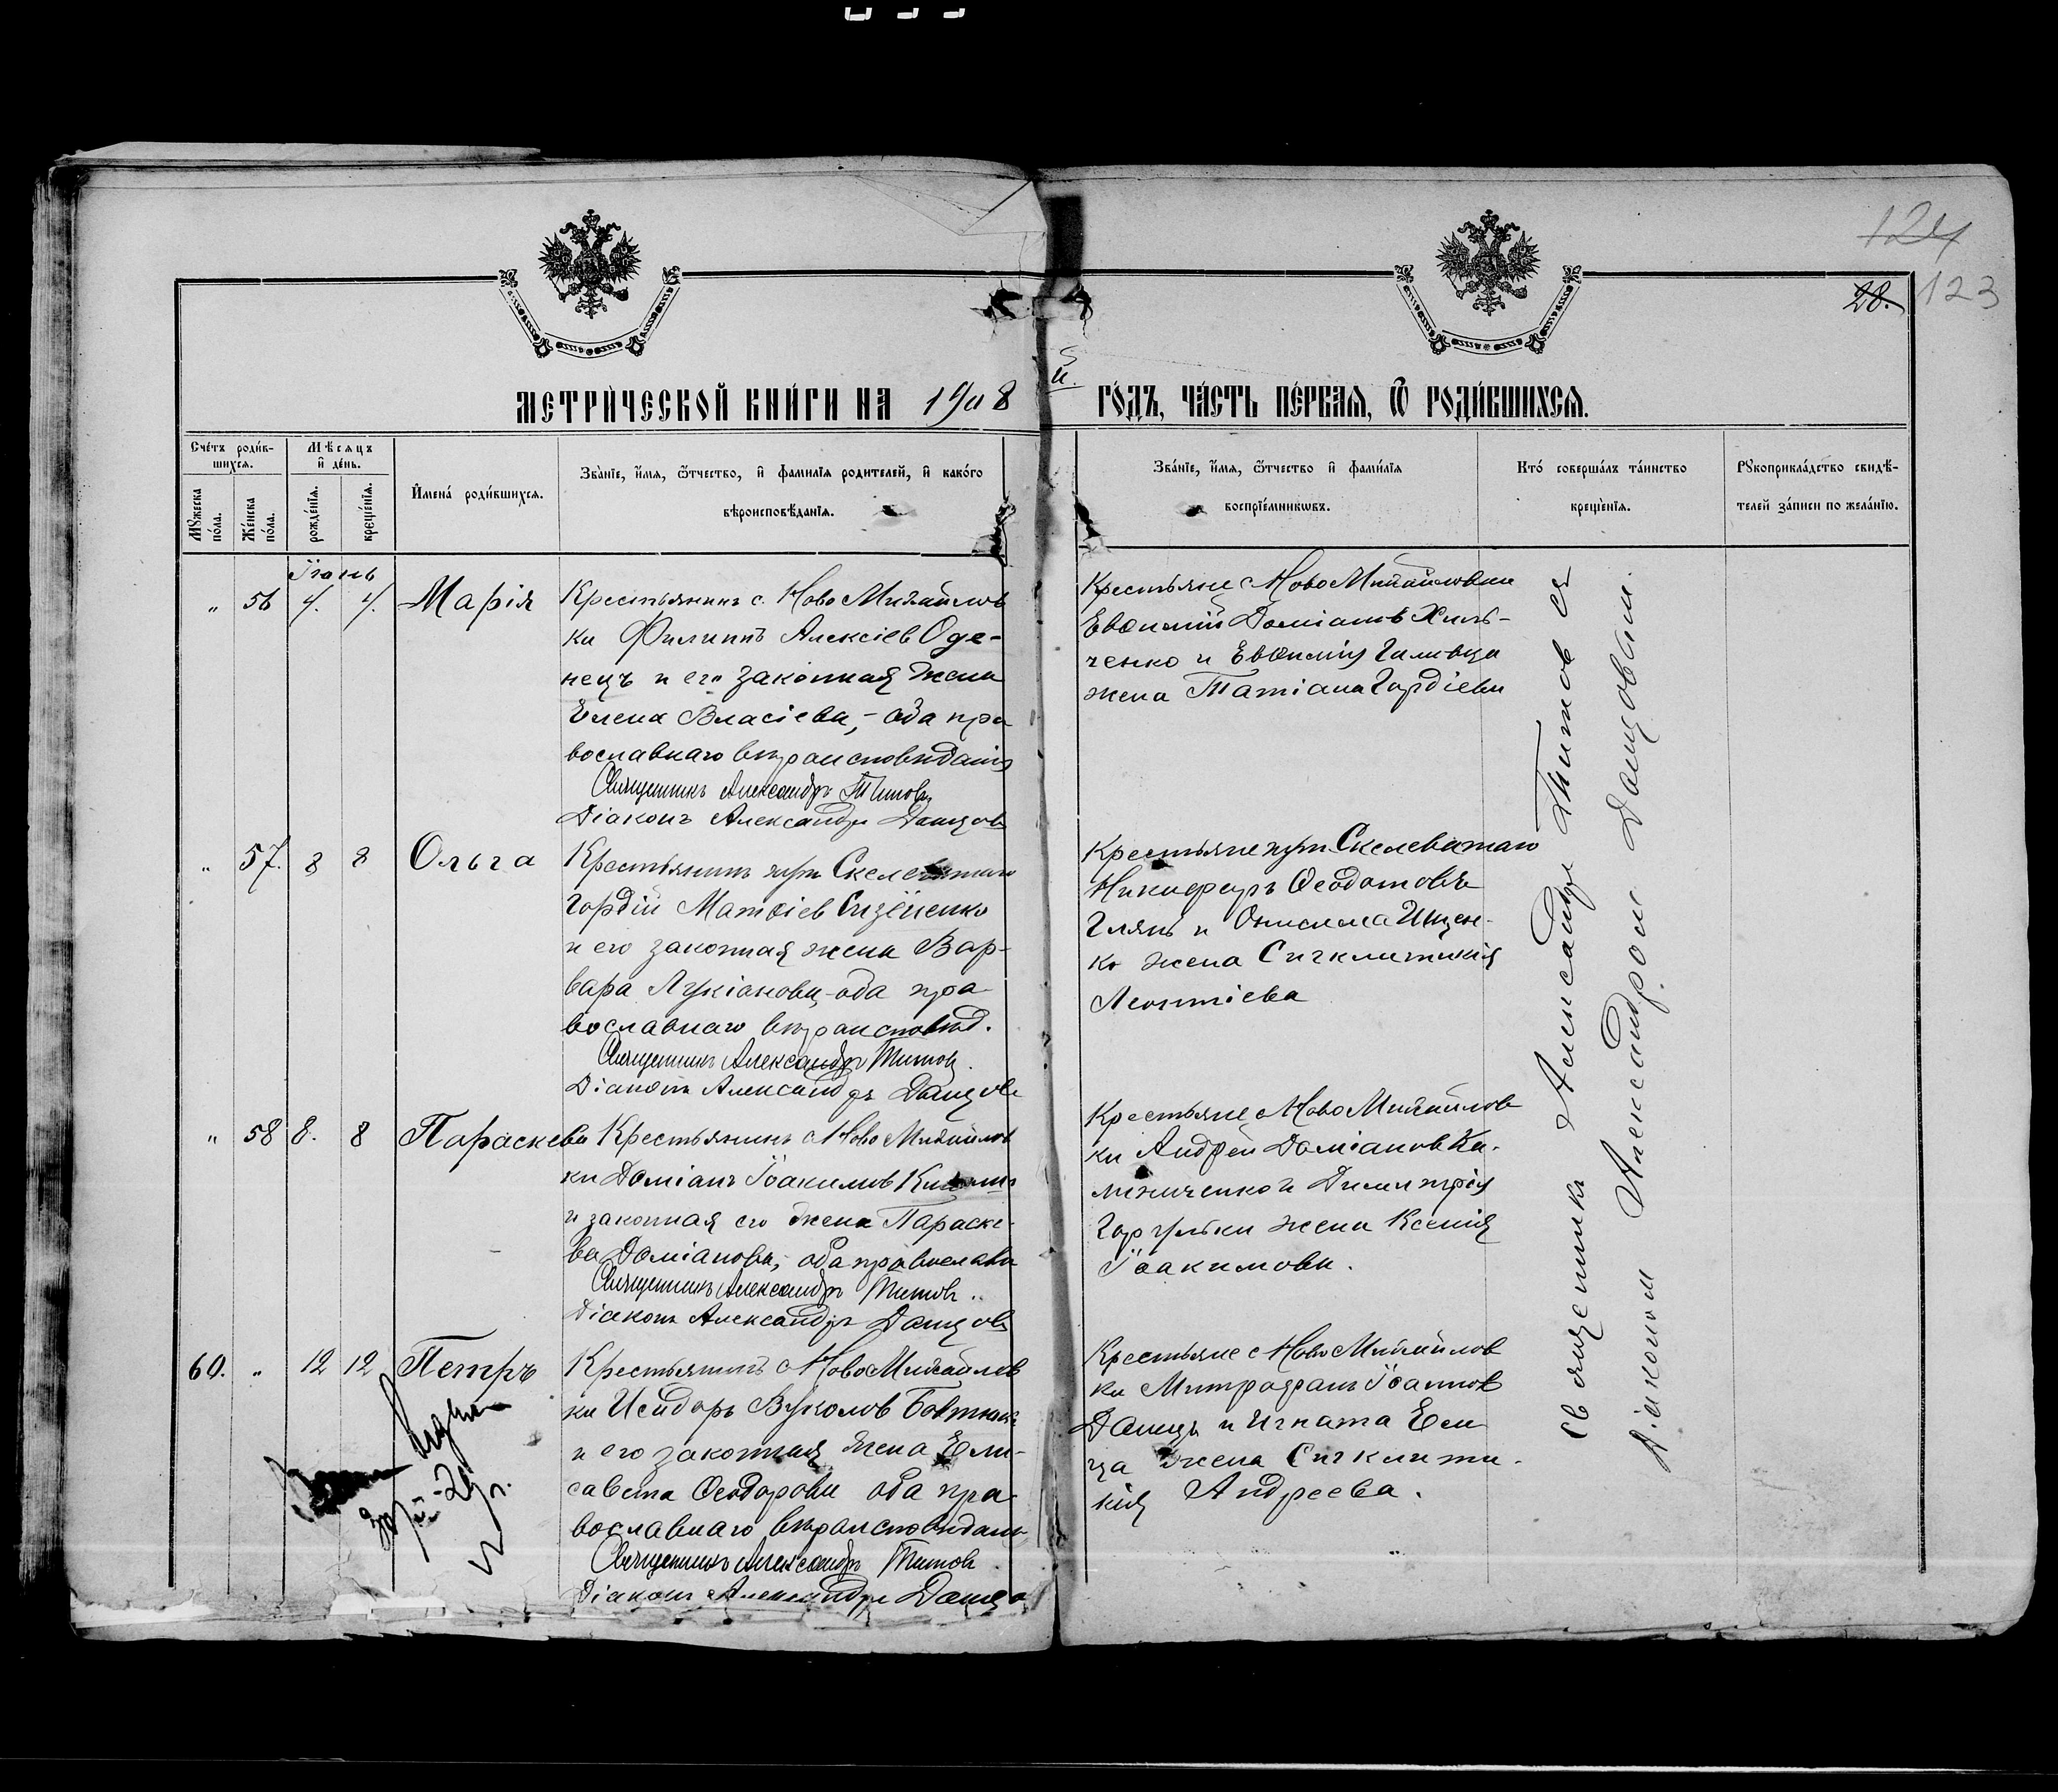 124
28.
123
МЕТРИ́ЧЕСКОЙ КНИ́ГИ НА 1908 й. ГО́ДЪ, ЧА́СТЬ ПЕ́РВАѦ, Ѿ РОДИ́ВШИХСѦ.
Сче́тъ роди́в-
шихсѧ.
Мꙋ́жеска по́ла.
Же́нска по́ла.
Мѣ́сѧцъ
и҆ де́нь.
рожде́нїѧ.
креще́нїѧ.
И҆мена́ роди́вшихсѧ.
Зва́нїе, и҆́мѧ, ѻ҆́тчество, и҆ фами́лїѧ роди́телей, и҆ како́го
вѣроисповѣ́данїѧ.
Зва́нїе, и҆́мѧ, ѻ҆́тчество и҆ фами́лїѧ
воспрїе́мникѡвъ.
Кто́ соверша́лъ та́инство
креще́нїѧ.
Рꙋкоприкла́дство свидѣ́-
телей за́писи по жела́нїю.
Іюнь
„ 56 4. 4. Марія
Крестьянинъ с. Ново Михайлов
ки Филиппъ Алексіев Оде-
нецъ и его законная жена
Елена Власіева, - оба пра
вославнаго вѣроисповѣданія
Священникъ Александръ Титовъ
Діаконъ Александръ Данцов
Крестьяне с Ново Михайловки
Евѳимій Доміановъ Хиль-
ченко и Евѳимія
жена Татіана Гордіева
„ 57. 8 8 Ольга
Крестьянинъ хут. Скелеватаго
Гордій Матѳіев
и его законная жена Вар-
вара Лукіанова - оба пра
вославнаго вѣроисповѣд.
Священникъ Александръ Титов.
Діаконъ Александръ Данцов
Крестьяне хут. Скелеватаго
Никифоръ Ѳеодотовъ
и Онисима Ищен-
ко жена Сигклитикія
Леонтіева
„ 58 8. 8 Параскева
Крестьянинъ с Ново Михайлов
ки Доміанъ Іоакимов
и законная его жена Параске-
ва Доміанова, оба православн
Священникъ Александръ Титов.
Діаконъ Александръ Данцов
Крестьяне с Ново Михайлов
ки Андрей Доміанов Ка-
линиченко и Димитрія
Горгульки жена Ксенія
Іоакимова.
60. „ 12 12 Петръ
Крестьянинъ с Ново Михайлов
ки Исидоръ Вуколов
и его законная жена Ели-
савета Ѳеодорова оба пра-
вославнаго вѣроисповѣдан.
Священникъ Александръ Титов
Діаконъ Александръ Данцо
Крестьяне с Ново Михайлов
ки Митрофанъ Іоаннов
Данецъ и Игната Ели
ца жена Сигклити-
кія Андреева.
Священникъ Александръ Титов съ
Діакономъ Александромъ Данцовым.